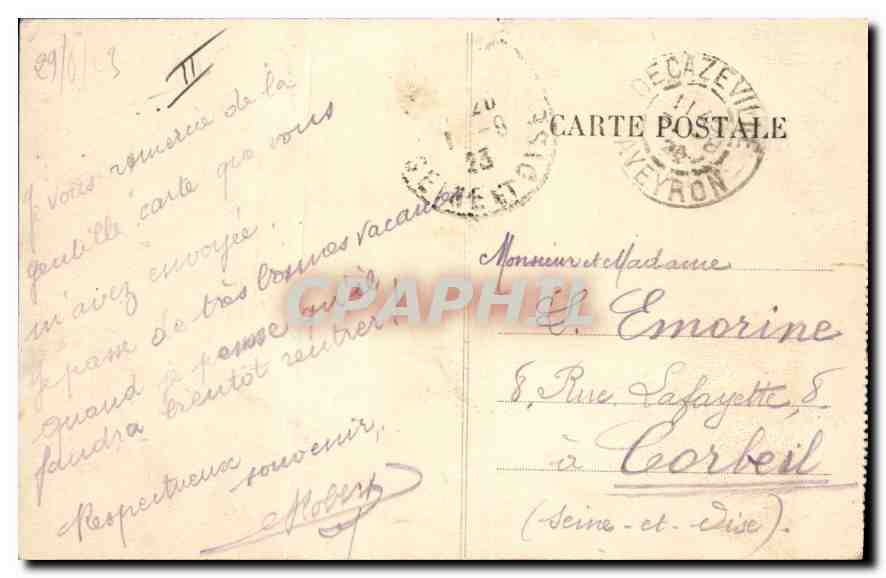 II
Je vous remercie de la
gentille carte que vous
m'avez envoyée.
Je passe de très bonnes vacances
quand je pense qu'il
faudra bientôt rentrer!
Respectueux souvenir,
Robert
SEINE ET OISE
23
DECAZEVILLE
AVEYRON
CARTE POSTALE
Monsieur et Madame
L. Emorine
8, Rue Lafayette, 8
à Corbeil
(Seine-et-Oise).
CPAPHIL